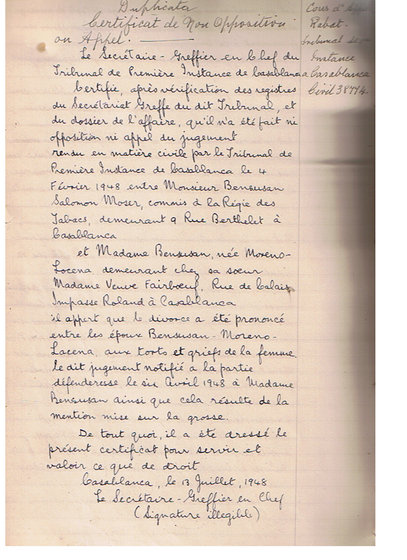 Duplicata
Certificat de Non Opposition
ou Appel.
Cour d'Appel
Rabat.
Tribunal de 1ère
Instance
Casablanca
Civil 38774
Le Secrétaire-Greffier en Chef du
Tribunal de Première Instance de Casablanca
Certifie, après vérification des registres
du Secrétariat Greffe du dit Tribunal, et
du dossier de l'affaire, qu'il n'a été fait ni
opposition ni appel du jugement
rendu en matière civile par le Tribunal de
Première Instance de Casablanca le 4
Février 1948 entre Monsieur Bensusan
Salomon Moser, commis à la Régie des
Tabacs, demeurant 9 Rue Berthelet à
Casablanca
et Madame Bensusan, née Moreno-
Locena demeurant chez sa sœur
Madame Veuve Fairbœuf, Rue de Calais,
Impasse Roland à Casablanca
il appert que le divorce a été prononcé
entre les époux Bensusan-Moreno-
Lacena, aux torts et griefs de la femme
le dit jugement notifié à la partie
défenderesse le six Avril 1948 à Madame
Bensusan ainsi que cela résulte de la
mention mise sur la grosse.
De tout quoi, il a été dressé le
présent certificat pour servir et
valoir ce que de droit
Casablanca, le 13 Juillet, 1948
Le Secrétaire-Greffier en Chef
(Signature illegible)